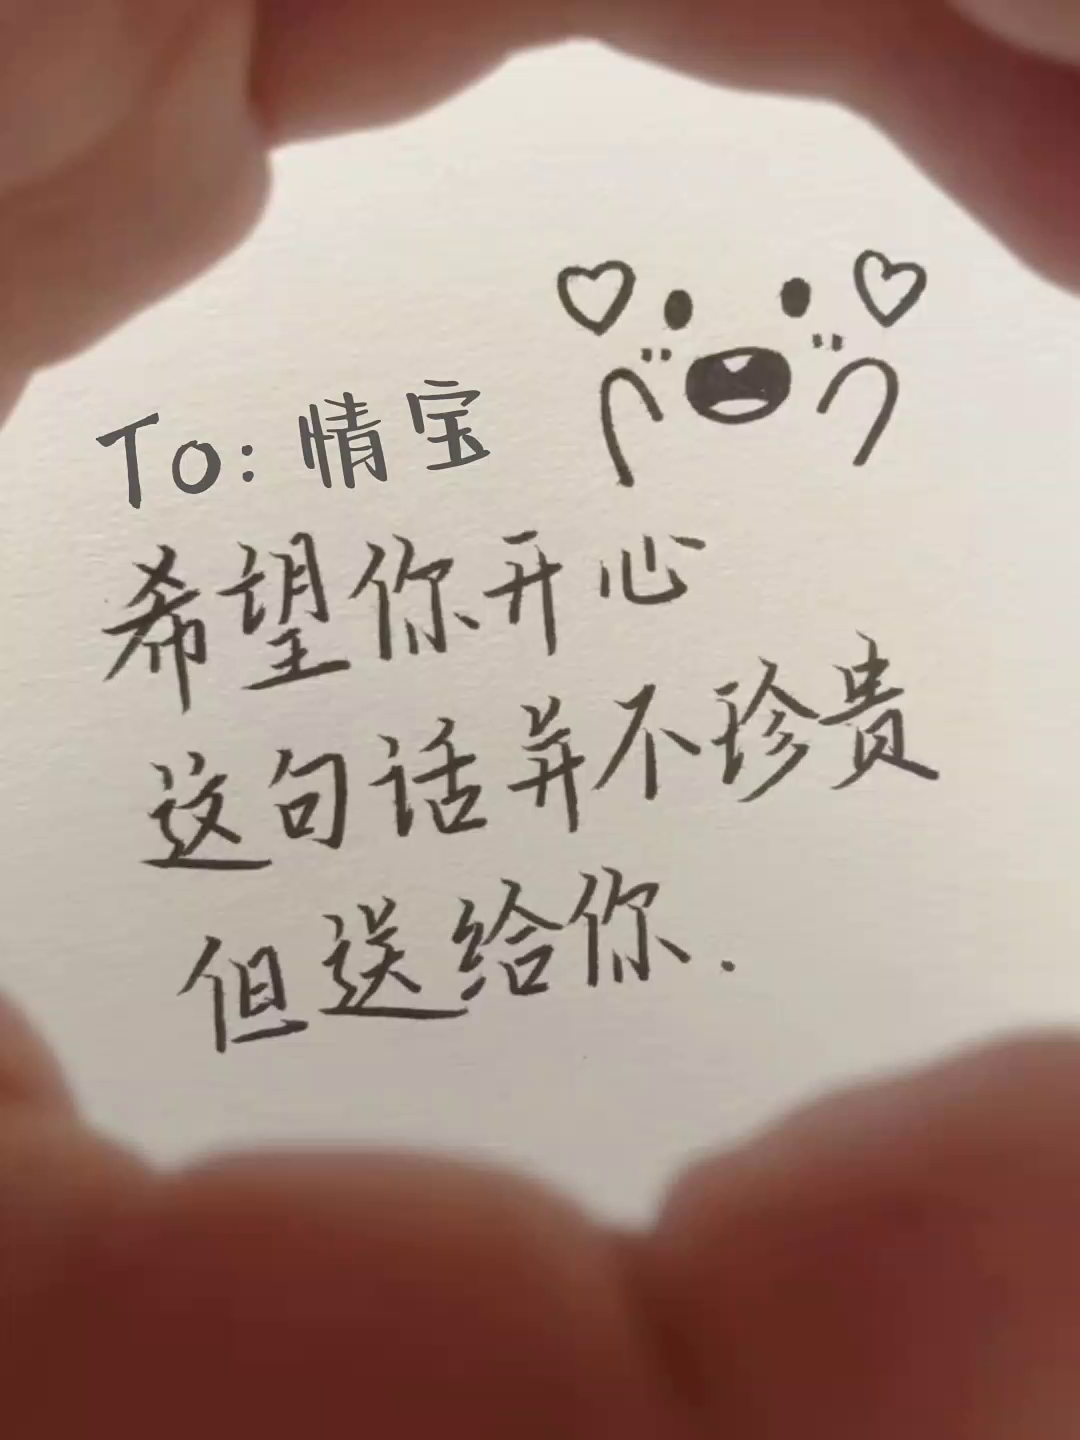 To: 情宝
希望你开心
这句话并不珍贵
但送给你.